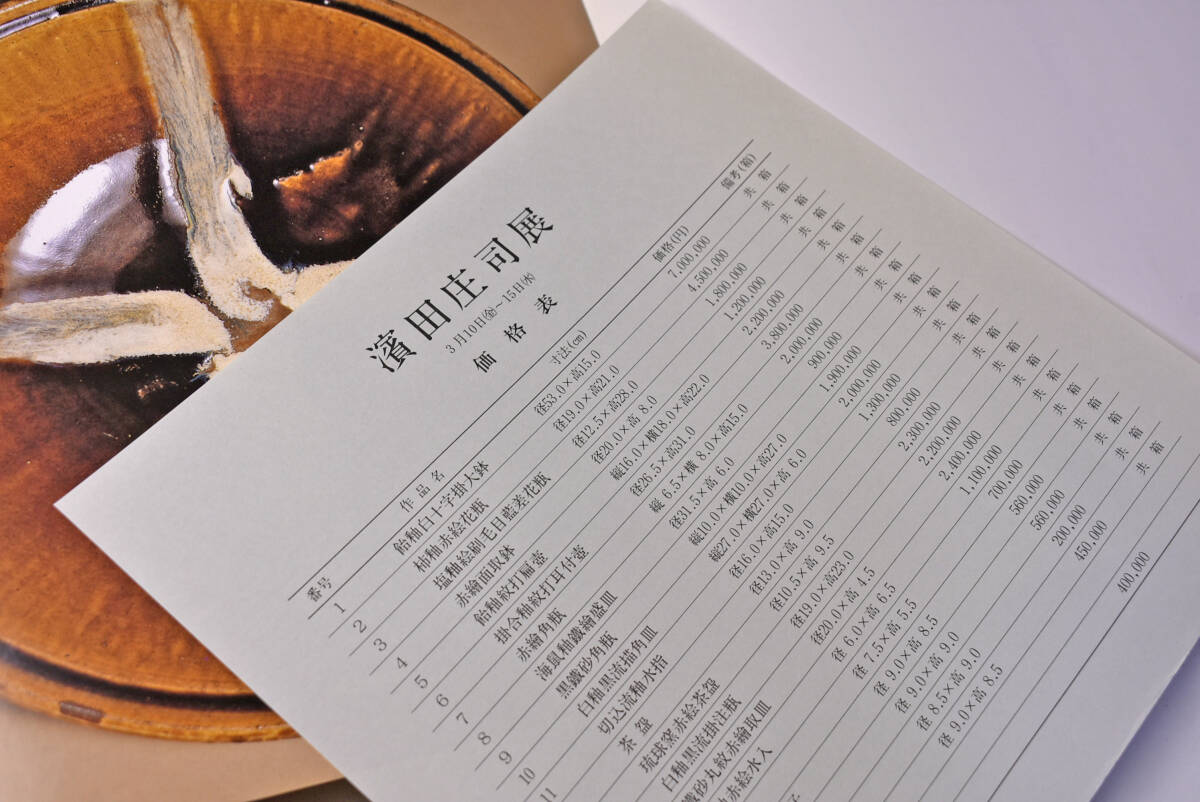 濱田庄司展
3月10日(金)~15日(水)
価格表
番号 作品名 寸法(cm) 価格(円) 備考(箱)
1 飴釉白十字掛大鉢 径53.0×高15.0 7,000,000 共箱
2 柿釉赤絵花瓶 径19.0×高21.0 4,500,000 共箱
3 塩釉絵刷毛目藍差花瓶 径12.5×高28.0 1,800,000 共箱
4 赤繪面取鉢 径20.0×高 8.0 1,200,000 共箱
5 飴釉紋打扁壺 縦16.0×横18.0×高22.0 2,200,000 共箱
6 掛合釉紋打耳付壺 径26.5×高31.0 3,800,000 共箱
7 赤繪角瓶 縦 6.5×横 8.0×高15.0 2,000,000 共箱
8 海鼠釉鐵繪盛皿 径31.5×高 6.0 900,000 共箱
9 黒鐵砂角瓶 縦10.0×横10.0×高27.0 1,900,000 共箱
10 白釉黒流描角皿 縦27.0×横27.0×高 6.0 2,000,000 共箱
11 切込流釉水指 径16.0×高15.0 1,300,000 共箱
茶盌 径13.0×高 9.0 800,000 共箱
琉球窯赤絵茶盌 径10.5×高 9.5 2,300,000 共箱
白釉黒流掛注瓶 径19.0×高23.0 2,200,000 共箱
鐵砂丸紋赤繪取皿 径20.0×高 4.5 2,400,000 共箱
赤絵水入 径 6.0×高 6.5 1,100,000 共箱
径 7.5×高 5.5 700,000 共箱
径 9.0×高 8.5 560,000 共箱
径 9.0×高 9.0 560,000
径 8.5×高 9.0 200,000
径 9.0×高 8.5 450,000
400,000